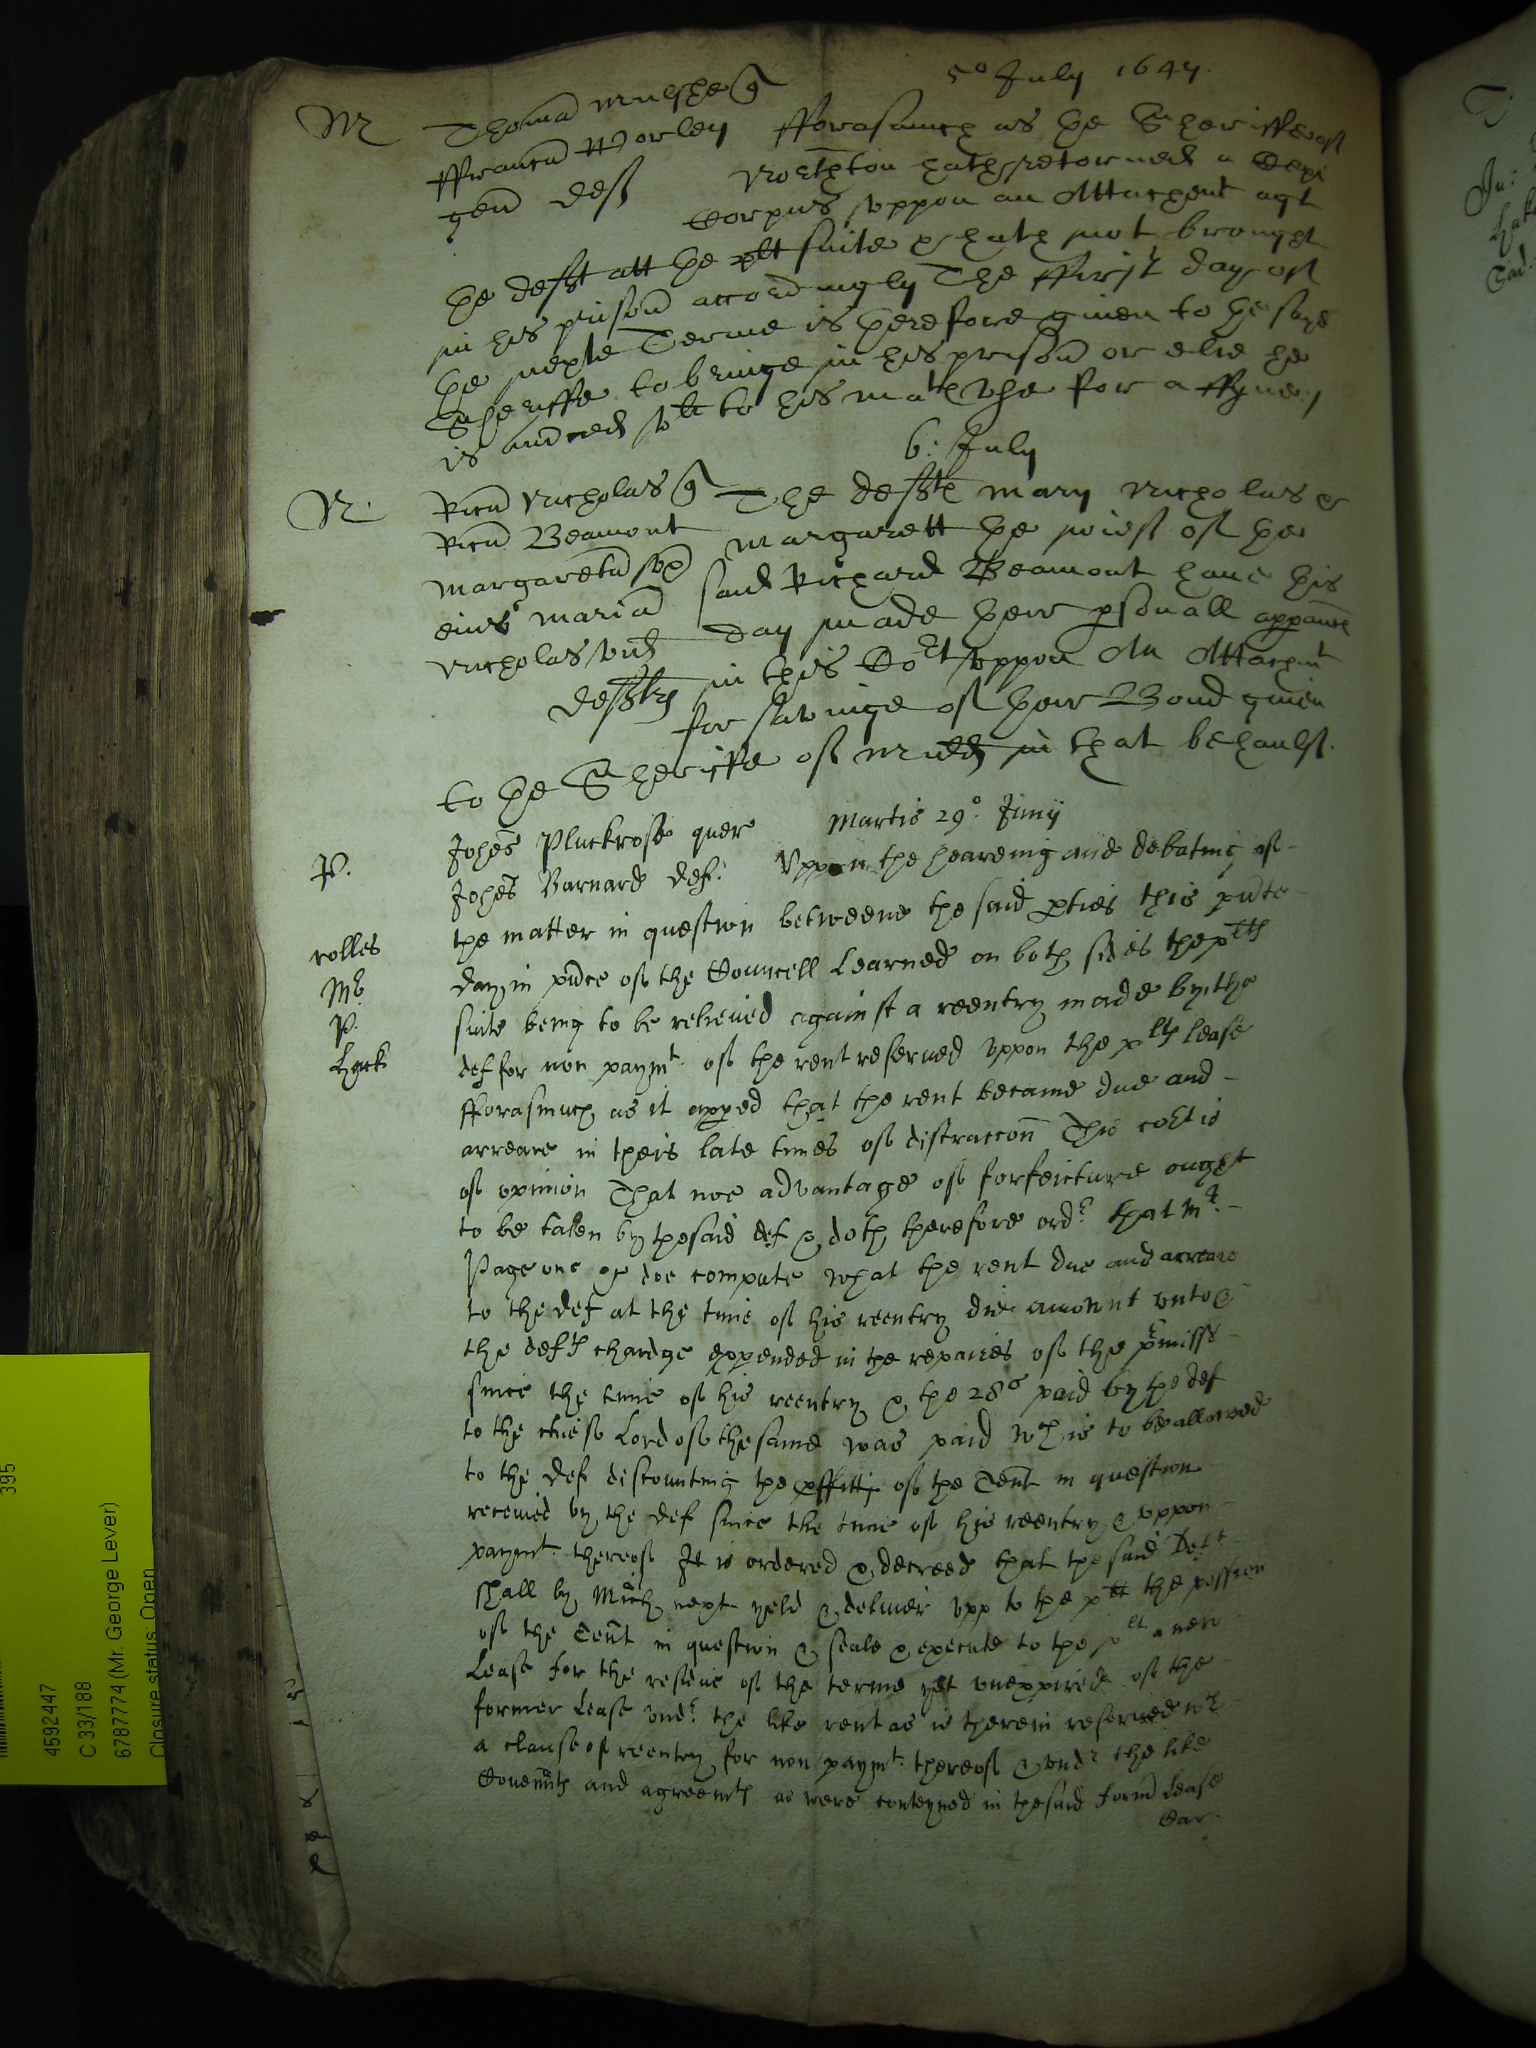 5o July 1647.
M Thoma Mulshe q
ffrancu Worley fforasmuch as the Sheriffe of
gen def Northton hath retorned a Cepi
Corpus uppon an Attachmt agt
the deft att the plt suite & hath not brought
in his prison accordingly The ffirst day of
the nexte Terme is therefore given to the said
Sheriffe to bringe in his prison or else he
is amerced vli to his maties use for a ffyne
6: July
N. Ricu Nicholas q The defts Mary Nicholas &
Ricu Beamont Margarett the wief of the
Margareta uxor said Richard Beamont have this
eius Maria day made their psonall apparance
Nicholas vid in this Cort uppon An Attachmt
defts for savinge of their Bond given
to the Sheriffe of Midd in that behaulf.
Martis 29o. Junij
P. Johes Pluckrose quer
Johes Barnard def. Uppon the heareing and debating of
the matter in question betweene the said pties this pnte
rolles day in pnce of the Councell Learned on both sides the plts
Mr suite being to be relieved against a reentry made by the
P. def for non paymt of the rent reserved uppon the plts lease
Hack fforasmuch as it apped that the rent became due and
arreare in theis late times of distraccon This cort is
of opinion That noe advantage of forfeicture ought
to be taken by the said def & doth therefore ordr that Mr
Page one &c doe compute what the rent due and arreare
to the def at the time of his reentry did amount unto &
the defts chardge expended in the repaires of the pmisss
since the time of his reentry & the 28s paid by the def
to the chief Lord of the same was paid wch is to be allowed
to the def discounting the pffitts of the Tent in question
received by the def since the time of his reentry & uppon
paymt thereof It is ordered & decreed that the said Deft
shall by Mich next yeld & deliver upp to the plt the possion
of the Tent in question & seale & execute to the plt a new
Lease for the residue of the terme yet unexpired of the
former Lease undr the like rent as is therein reserved wth
a clause of reentry for non paymt thereof & undr the like
Covennts and agreemts as were conteyned in the said former Lease
Ear
4592447
C 33/188
6787774 (Mr. George Lever)
Closure status: Open
395